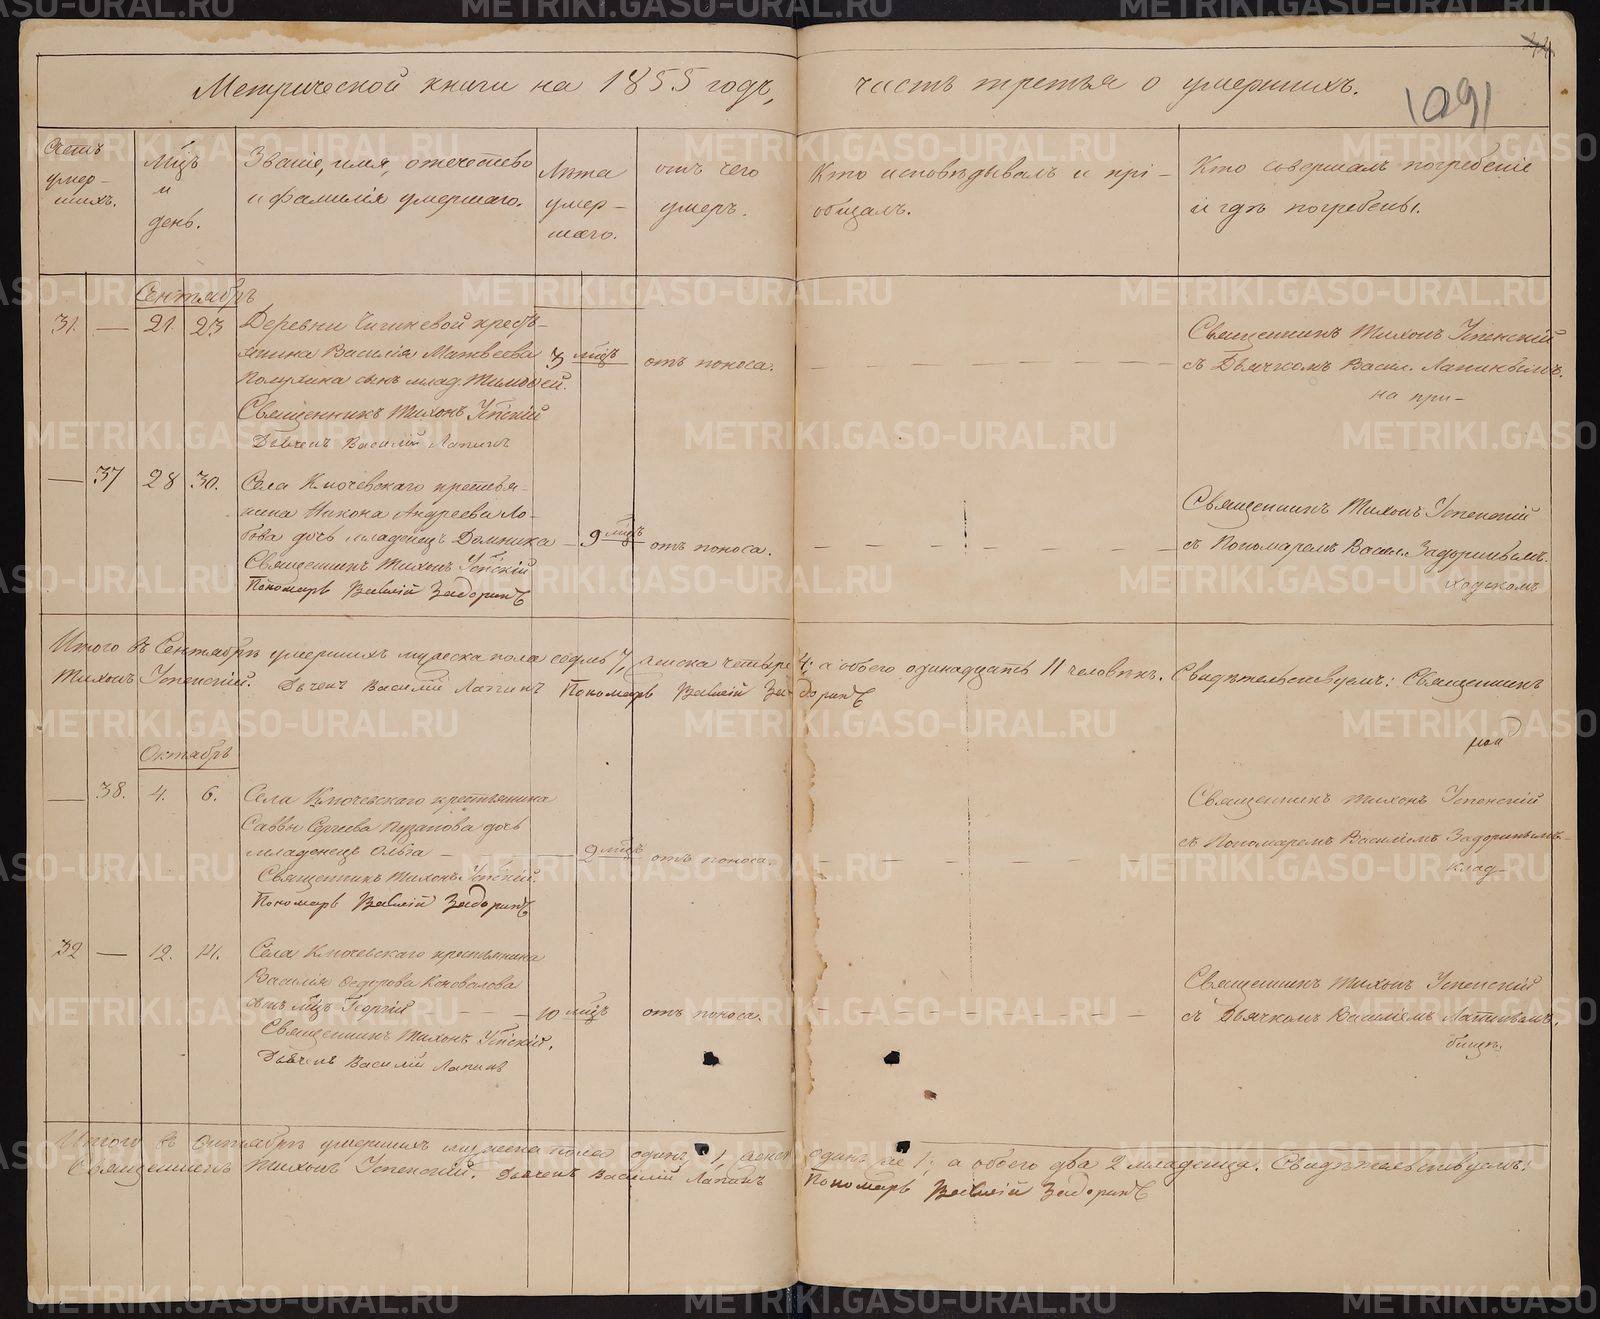 44
1091
Метрической книги на 1855 годъ, часть третья о умершихъ.
Счетъ умер-шихъ.
Мцъ и день.
Званіе, имя, отечество и фамилія умершаго.
Лѣта умер-шаго.
отъ чего умеръ.
Кто исповѣдывалъ и прі-общалъ.
Кто совершалъ погребеніе и гдѣ погребены.
Сентябрь
31. — 21. 23 Деревни крестъ-
янина Василія Матвеева 3 мцъ отъ поноса.
сынъ млад. Тимофей.
Священникъ Тихонъ Успскій
Дьячекъ Василій Лапинъ
Священникъ Тихонъ Успенскій
съ Дьячкомъ Васил. Лапинымъ.
на при-
— 37 28 30. Села Ключевскаго крестья-
нина Никона Андреева Ло-
бова дочь младенецъ Домника — 9 мцъ отъ поноса.
Священникъ Тихонъ Успскій
Пономарь Василій Задоринъ
Священникъ Тихонъ Успенскій
съ Пономаремъ Васил. Задоринымъ.
ходскомъ
Итого въ Сентябрѣ умершихъ мужеска пола седмь 7, женска четыре 4; а обоего одинадцать 11 человѣкъ. Свидѣтельствуемъ: Священникъ
Тихонъ Успенскій. Дьячекъ Василій Лапинъ Пономарь Василій Задоринъ
Октябрь
— 38. 4. 6. Села Ключевскаго крестьянина
Саввы Сергеева дочь
младенецъ Ольга — 2 мцъ отъ поноса.
Священникъ Тихонъ Успскій.
Пономарь Василій Задоринъ
Священникъ Тихонъ Успенскій
съ Пономаремъ Василіемъ Задоринымъ
клад-
32 — 12. 14. Села Ключевскаго крестьянина
Василія Федорова Коновалова
Георгій — 10 мцъ отъ поноса.
Священникъ Тихонъ Успскій.
Дьячекъ Василій Лапинъ
Священникъ Тихонъ Успенскій
съ Дьячкомъ Василіемъ Лапинымъ.
бищѣ.
Итого въ Октябрѣ умершихъ мужеска пола одинъ 1, женск одинъ же 1; а обоего два 2 младенца. Свидѣтельствуемъ:
Священникъ Тихонъ Успенскій. Дьячекъ Василій Лапинъ Пономарь Василій Задоринъ
METRIKI.GASO-URAL.RU